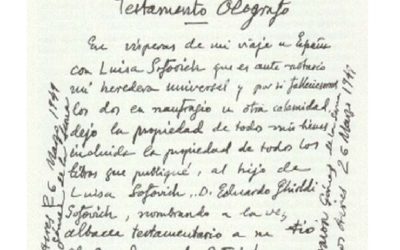 Testamento Ológrafo
En vísperas de mi viaje a España
con Luisa Sofovich que es ante notario
mi heredera universal y por si falleciesemos
los dos en naufragio u otra calamidad,
dejo la propiedad de todos mis bienes
incluida la propiedad de todos los
libros que publiqué, al hijo de
Luisa Sofovich, D. Eduardo Ghioldi
Sofovich, nombrando a la vez
albacea testamentario a su tío
26 Marzo 1949
Ramón Gómez de la Serna
Aires 26 Marzo 1949